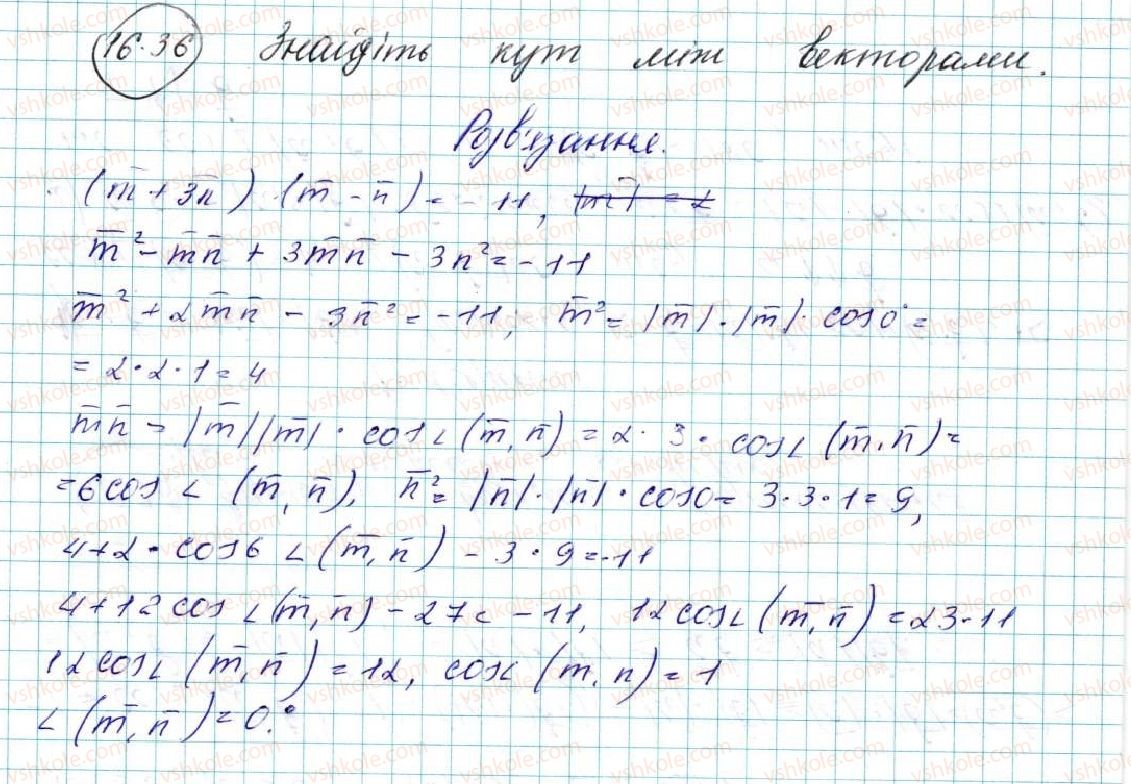 16.36 Знайдіть кут між векторами.
Розв'язання.
(m̅ + 3n̅) · (m̅ - n̅) = -11, |m̅| = 2
m̅² - m̅n̅ + 3m̅n̅ - 3n² = -11
m̅² + 2m̅n̅ - 3n̅² = -11; m̅² = |m̅|·|m̅|· cos0° =
= 2·2·1 = 4
m̅n̅ = |m̅||m̅|· cos∠(m̅, n̅) = 2·3·cos∠(m̅, n̅) =
= 6cos∠(m̅, n̅), n̅² = |n̅|·|n̅|·cos0 = 3·3·1 = 9,
4+2·cos6∠(m̅, n̅) - 3·9 = -11
4+12cos∠(m̅, n̅) - 27 = -11, 12cos∠(m̅, n̅) = 23-11
12cos∠(m̅, n̅) = 12, cos∠(m, n) = 1
∠(m̅, n̅) = 0.°
vshkole.com